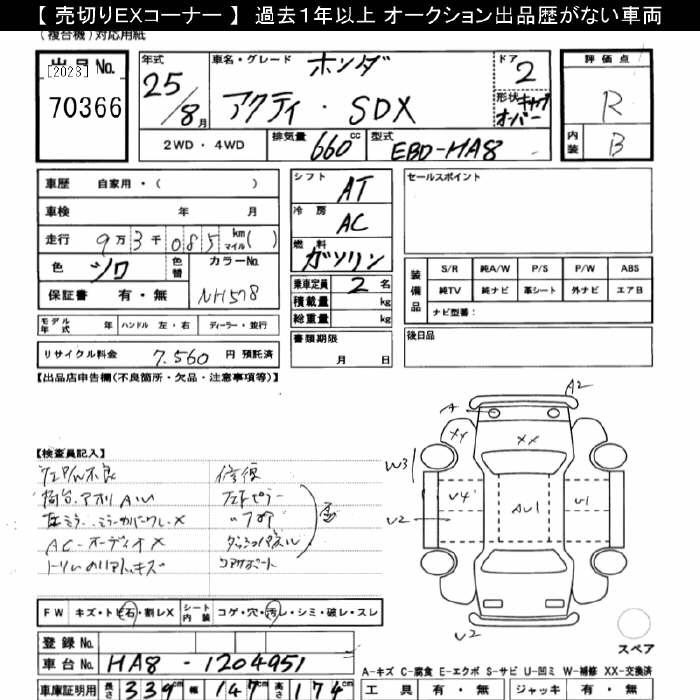 【 売切りEXコーナー 】 過去1年以上 オークション出品歴がない車両
(複合機)対応用紙
出品No.
[2023]
70366
年式
25/8月
車名・グレード ホンダ
アクティ・SDX
ドア 2
形状 キャブオーバー
評価点
R
内装 B
2WD・4WD
排気量 660cc
型式 EBD-HA8
車歴 自家用・( )
車検 年 月
走行 9万3千085km マイル( )
色 シロ 色替
カラーNo.
NH578
保証書 有・無
モデル年式 年 ハンドル 左・右 ディーラー・並行
リサイクル料金 7.560 円 預託済
シフト AT
冷房 AC
燃料 ガソリン
乗車定員 2 名
積載量 kg
総重量 kg
書類期限
月 日
セールスポイント
装備品
S/R 純A/W P/S P/W ABS
純TV 純ナビ 革シート 外ナビ エアB
ナビ型番:
後日品
【出品店申告欄(不良箇所・欠品・注意事項等)】
【検査員記入】
荷台.アオリAU
AC-オーディオX
修復
コアサポート
A2
A
XX
XX
W3
U4
AU1
U1
U2
U2
スペア
FW キズ・トビ石・割レX シート内装 コゲ・穴・汚レ・シミ・破レ・スレ
登録No.
車台No. HA8-1204951
車庫証明用 長さ 339cm 幅 147cm 高さ 174cm
A-キズ C-腐食 E-エクボ S-サビ U-凹ミ W-補修 XX-交換済
工具 有・無 ジャッキ 有・無